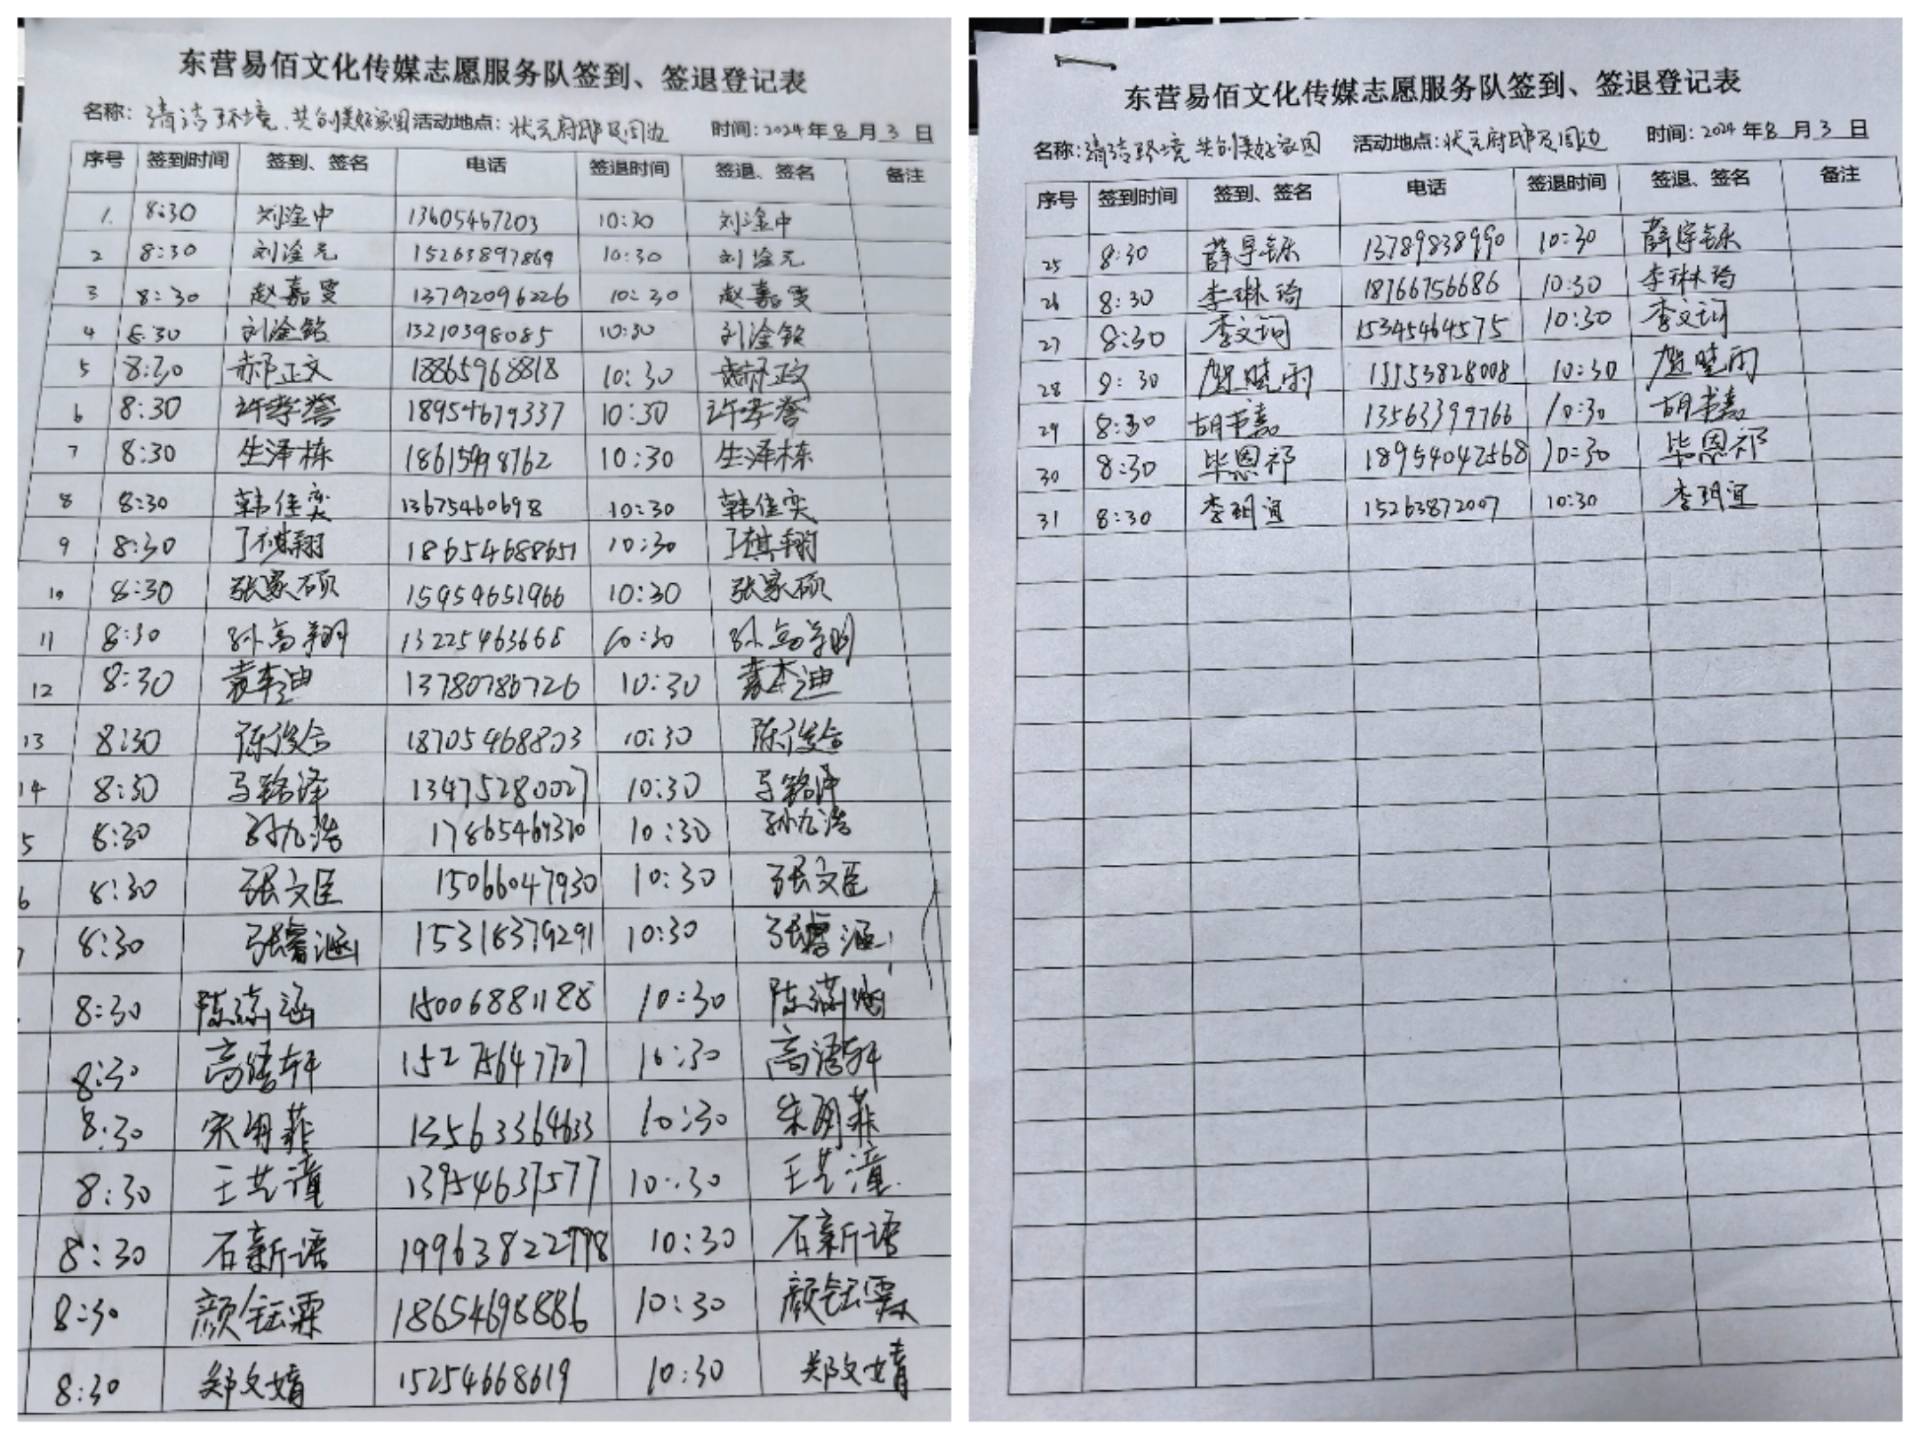 东营易佰文化传媒志愿服务队签到、签退登记表
名称：清洁环境、共创美好家园 活动地点：状元府邸及周边 时间：2024年8月3日
序号 签到时间 签到、签名 电话 签退时间 签退、签名 备注
1. 8:30 刘淦中 13605467203 10:30 刘淦中
2 8:30 刘淦元 15263897869 10:30 刘淦元
3 8:30 赵嘉雯 13792096226 10:30 赵嘉雯
4 8:30 刘淦铭 13210398085 10:30 刘淦铭
5 8:30 郝正文 18865968818 10:30 郝正文
6 8:30 许孝誉 18954679337 10:30 许孝誉
7 8:30 生泽栋 18615998762 10:30 生泽栋
8 8:30 韩佳奕 13675460698 10:30 韩佳奕
9 8:30 丁棋翔 18654688651 10:30 丁棋翔
10 8:30 张家硕 15959651966 10:30 张家硕
11 8:30 孙高翔 13225463668 10:30 孙高翔
12 8:30 袁李迪 13780786726 10:30 袁李迪
13 8:30 陈俊合 18705468803 10:30 陈俊合
14 8:30 马铭泽 13475280027 10:30 马铭泽
5 8:30 孙九浩 10:30 孙九浩
6 8:30 张文臣 15066047930 10:30 张文臣
8:30 张睿涵 15318379291 10:30 张睿涵
8:30 15006881188 10:30
8:30 15275647727 10:30
8:30 宋明菲 13563364633 10:30 宋明菲
8:30 王艺潼 13954637577 10:30 王艺潼
8:30 石新语 19963822798 10:30 石新语
8:30 颜钰霖 18654698886 10:30 颜钰霖
8:30 郑文婧 15254668619 10:30 郑文婧
东营易佰文化传媒志愿服务队签到、签退登记表
名称：清洁环境 共创美好家园 活动地点：状元府邸及周边 时间：2024年8月3日
序号 签到时间 签到、签名 电话 签退时间 签退、签名 备注
25 8:30 薛宇铄 13789838990 10:30 薛宇铄
26 8:30 李琳琦 18766756686 10:30 李琳琦
27 8:30 李文诃 15345464575 10:30 李文诃
28 8:30 贺晓雨 15153828008 10:30 贺晓雨
29 8:30 胡书嘉 13563399766 10:30 胡书嘉
30 8:30 毕恩祁 18954042568 10:30 毕恩祁
31 8:30 李玥宜 15263872007 10:30 李玥宜